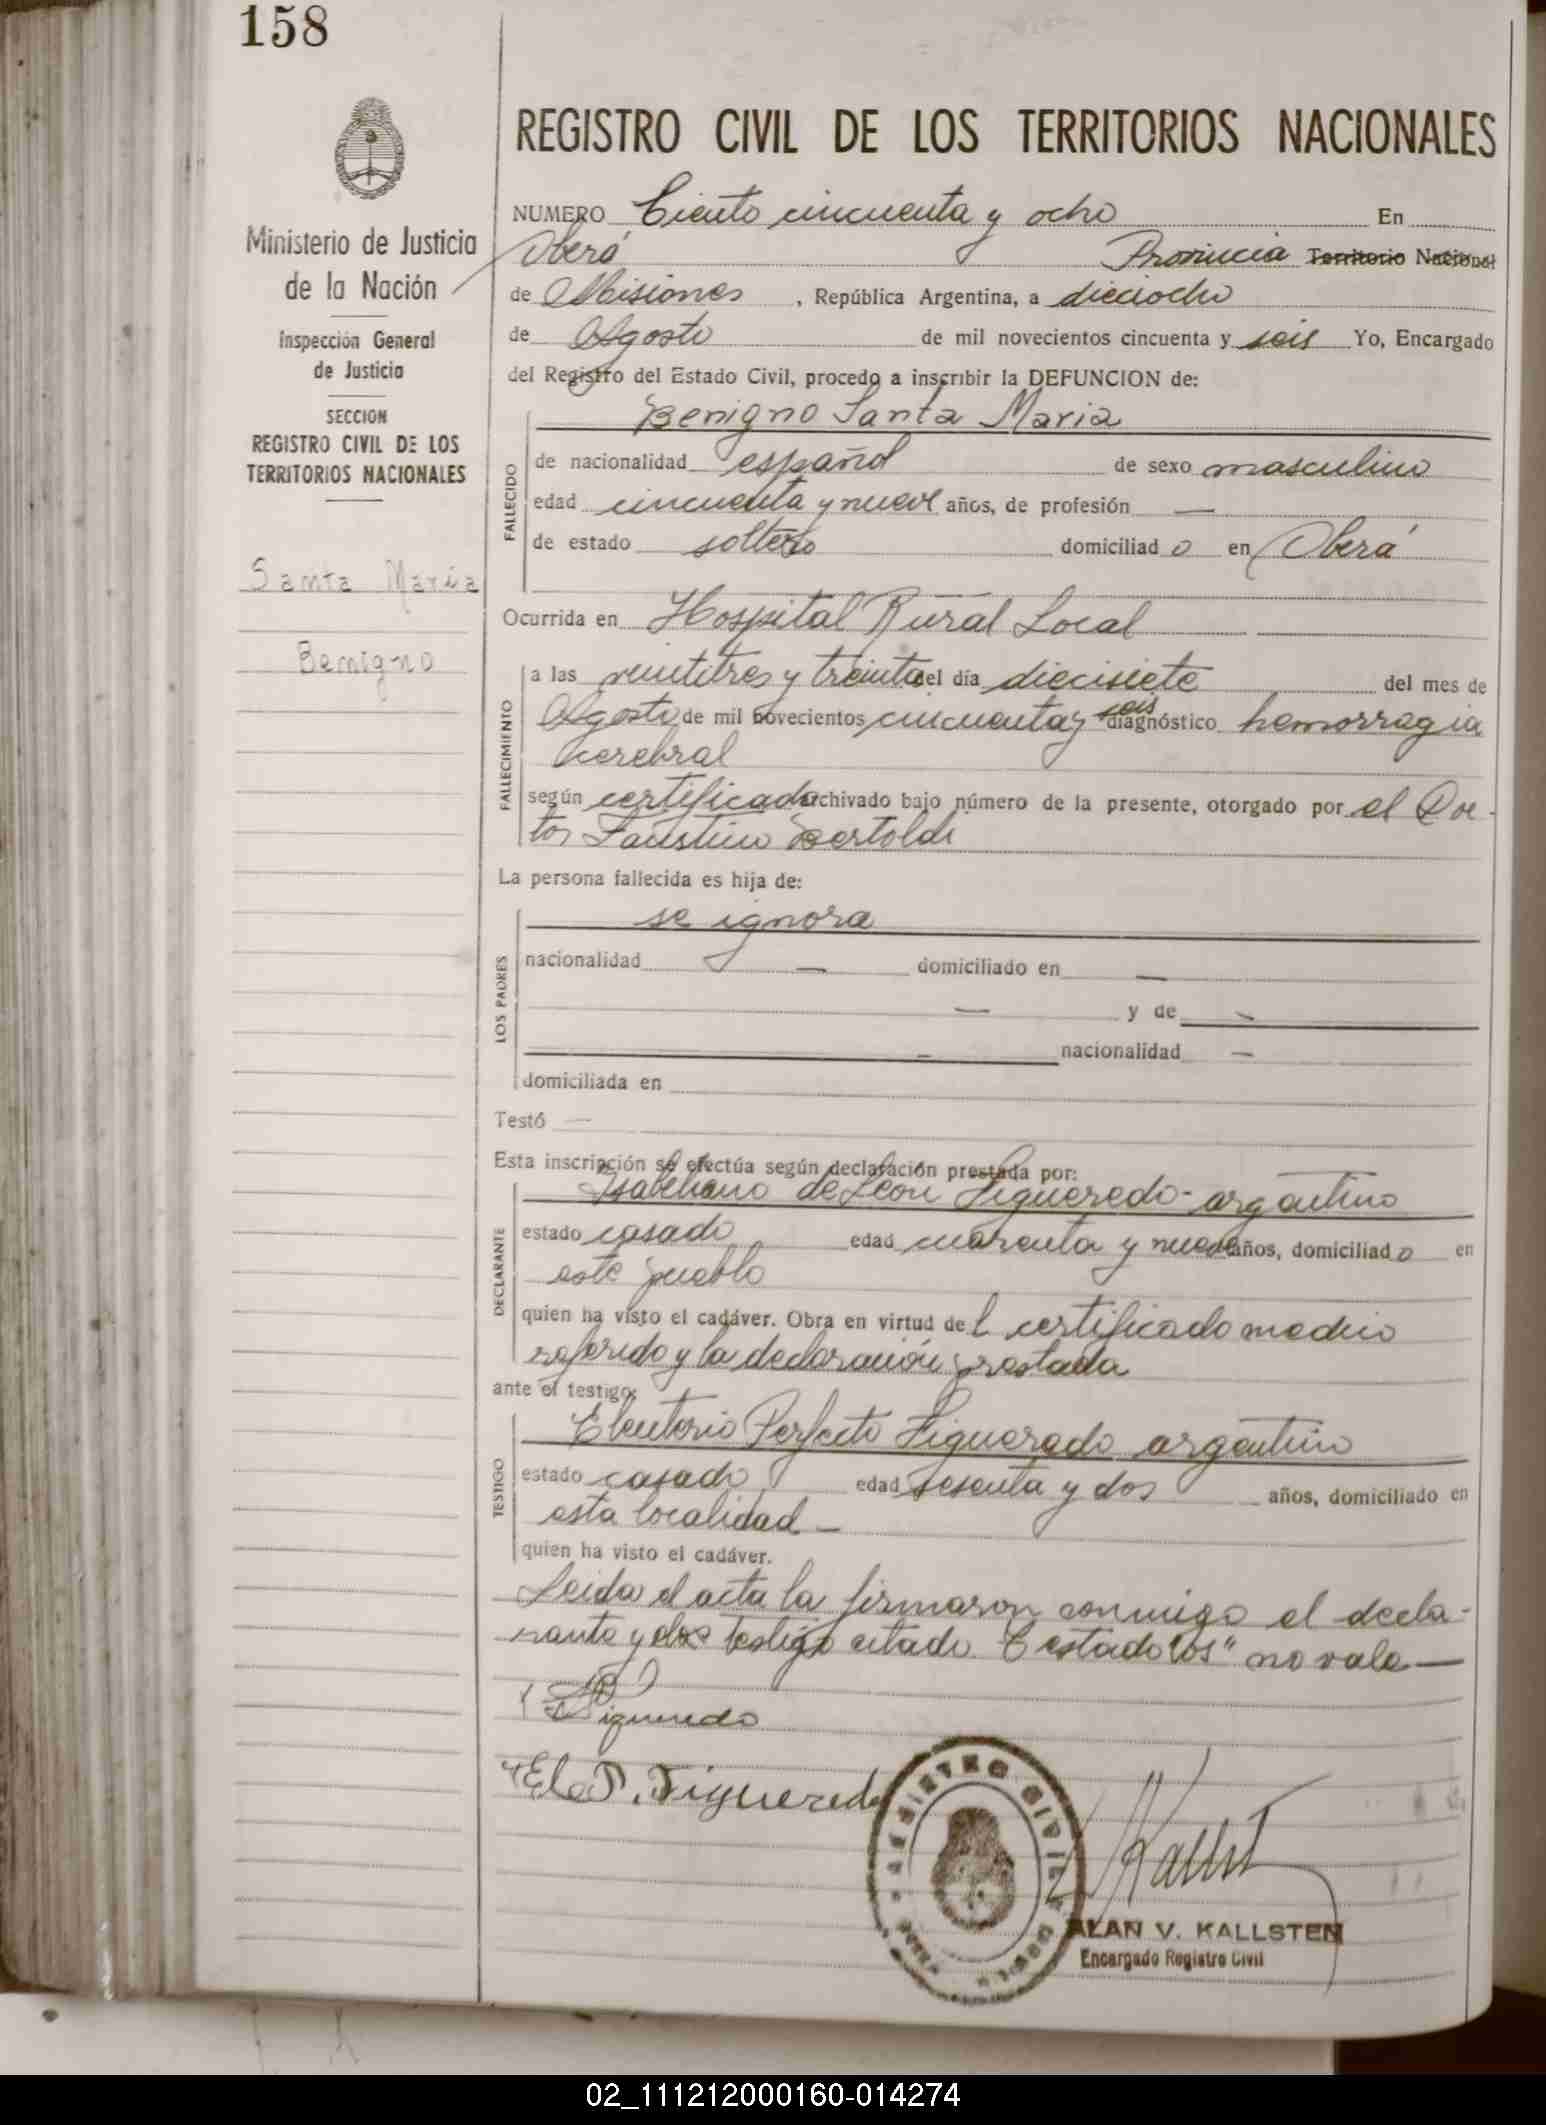 158
Ministerio de Justicia
de la Nación
Inspección General
de Justicia
SECCION
REGISTRO CIVIL DE LOS
TERRITORIOS NACIONALES
Santa Maria
Benigno
REGISTRO CIVIL DE LOS TERRITORIOS NACIONALES
NUMERO Ciento cincuenta y ocho En
Oberá Provincia Territorio Nacional
de Misiones , República Argentina, a dieciocho
de Agosto de mil novecientos cincuenta y seis Yo, Encargado
del Registro del Estado Civil, procedo a inscribir la DEFUNCION de:
FALLECIDO
Benigno Santa Maria
de nacionalidad español de sexo masculino
edad cincuenta y nueve años, de profesión —
de estado soltero domiciliad o en Oberá
Ocurrida en Hospital Rural Local
FALLECIMIENTO
a las veintitres y treinta del día diecisiete del mes de
Agosto de mil novecientos cincuenta y seis diagnóstico hemorragia
cerebral
según certificado archivado bajo número de la presente, otorgado por el Doc-
tor Faustino Bertoldi
La persona fallecida es hija de:
LOS PADRES
se ignora
nacionalidad — domiciliado en —
— y de —
— nacionalidad —
domiciliada en
Testó —
Esta inscripción se efectúa según declaración prestada por:
DECLARANTE
de Leon Figueredo - argentino
estado casado edad cuarenta y nueve años, domiciliado en
este pueblo
quien ha visto el cadáver. Obra en virtud del certificado medico
referido y la declaración prestada
ante el testigo:
TESTIGO
Eleuterio Perfecto Figueredo argentino
estado casado edad sesenta y dos años, domiciliado en
esta localidad —
quien ha visto el cadáver.
Leida el acta la firmaron conmigo el decla-
rante y el testigo citado. Testado "los" no vale —
Figueredo
El. P. Figueredo
REGISTRO CIVIL
ALAN V. KALLSTEN
Encargado Registro Civil
02_111212000160-014274